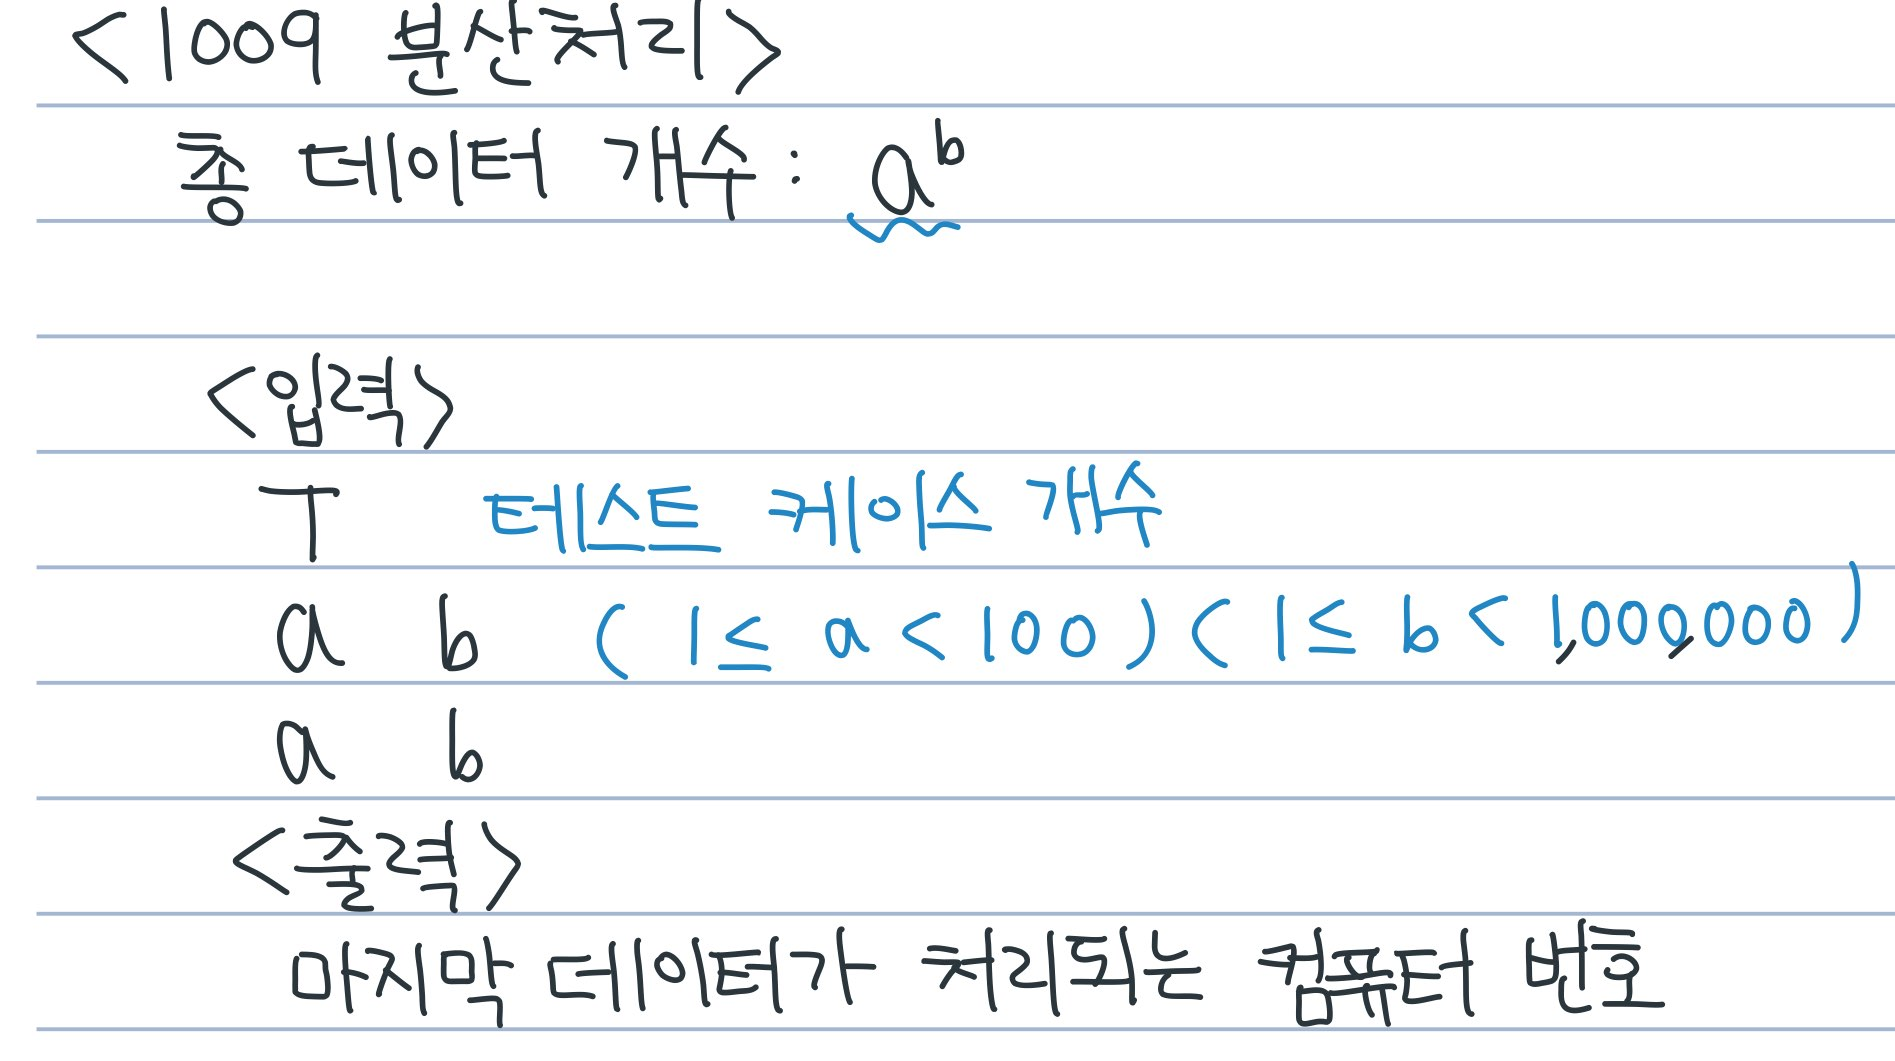 <1009 분산처리>
총 데이터 개수 : a^b
<입력>
T 테스트 케이스 개수
a b (1≤ a<100) (1≤ b < 1,000,000)
a b
<출력>
마지막 데이터가 처리되는 컴퓨터 번호